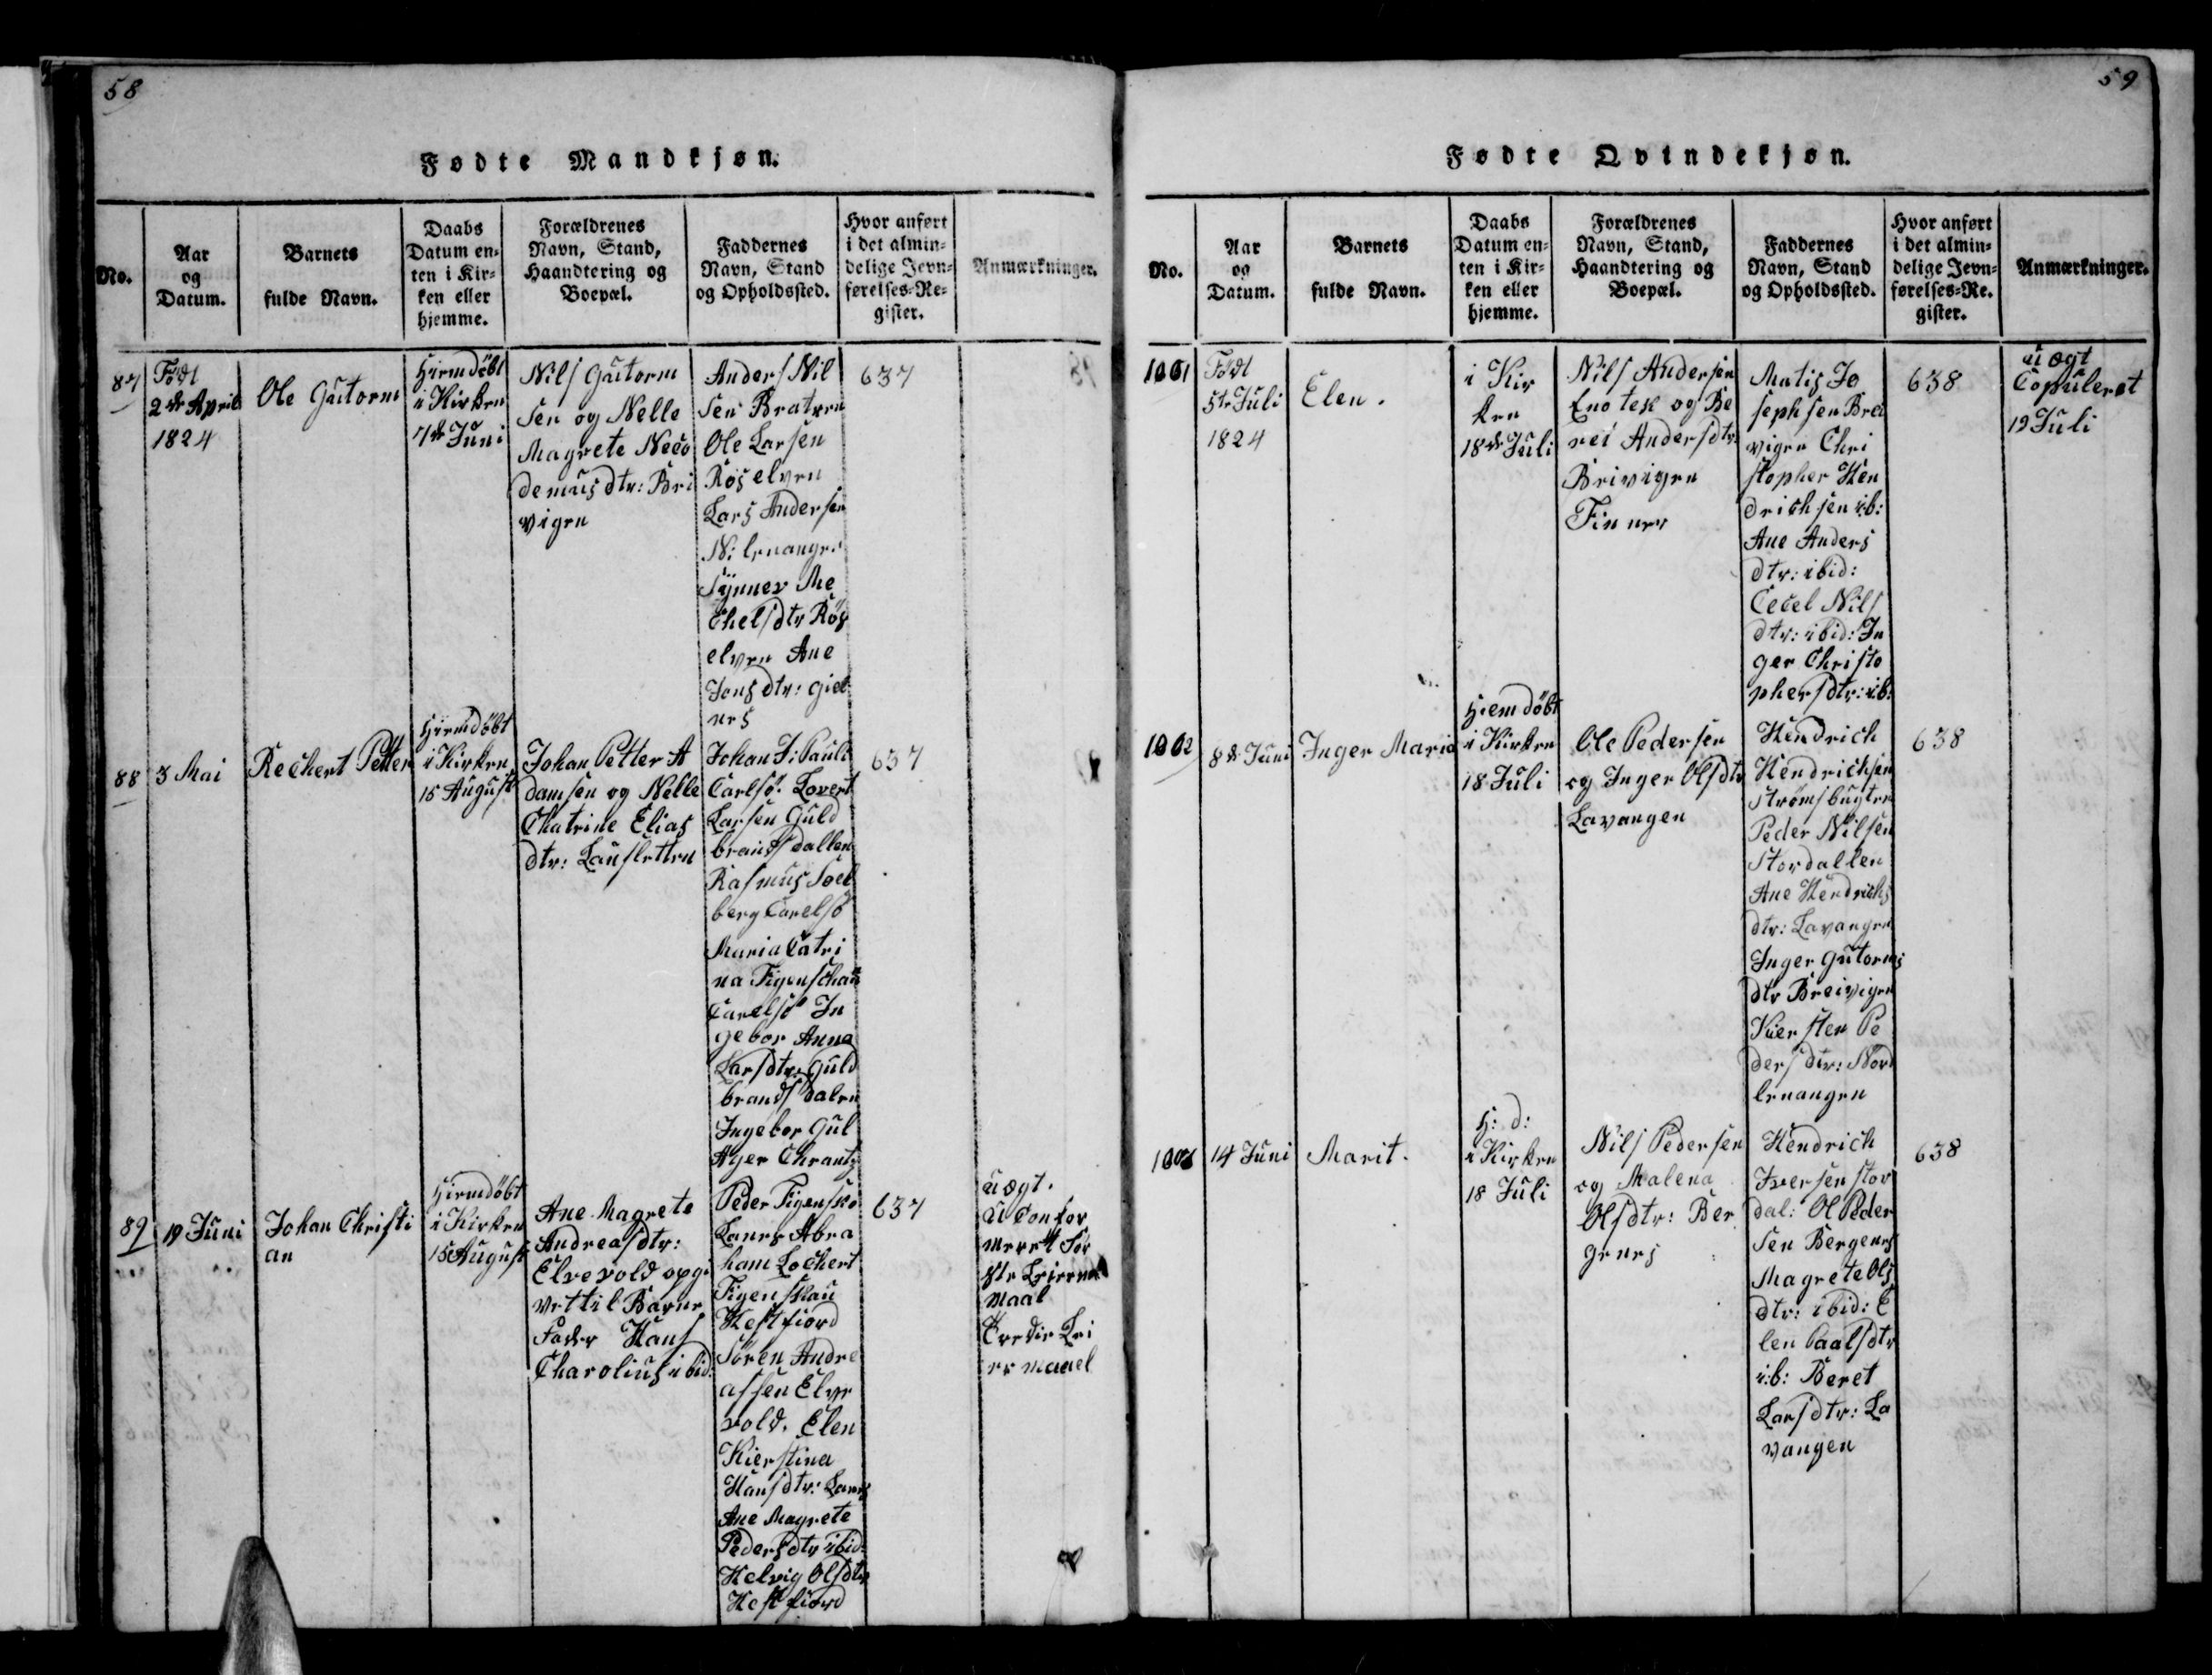 58
Fødte Mandkjøn.
No.
Aar
og
Datum.
Barnets
fulde Navn.
Daabs
Datum en-
ten i Kir-
ken eller
hjemme.
Forældrenes
Navn, Stand,
Haandtering og
Boepæl.
Faddernes
Navn, Stand
og Opholdssted.
Hvor anført
i det almin-
delige Jevn-
førelses-Re-
gister.
Anmærkninger.
87
Födt
2de April
1824
Ole Gutorm
Hiemdöbt
i Kirken
7de Juni
Nils Gutorm
sen og Nelle
Magrete Neco
demus dtr: Bri
vigen
Anders Nil
sen Bratren
Ole Larsen
Røselven
Lars Andersen
N: lenangen
Synnev Me
chelsdtr Røs
elven Ane
Jonsdtr: giæt
nes
637
88
3 Mai
Rechert Petter
Hiemdöbt
i Kirken
15 August
Johan Petter A
damsen og Nelle
Chatrine Elias
dtr: Lauksletten
Johan F: Pauli
Carlsö: Lovert
Larsen Guld
brandsdallen
Rasmus Soel
berg Carelsö
Maria Catri
na Figenschau
Carelsö In
gebor Anna
Larsdtr: Guld
brands dalen
Ingebor Gul
Ager Chrantz
637
89
19 Juni
Johan Christi
an
Hiemdöbt
i Kirken
15 August
Ane Magrete
Andreasdtr:
Elvevold opgi
vet til Barne
Fader Hans
Charolius ibid:
Peder Figensko
Lanes Abra
ham Lockert
Figenskau
Kestfiord
Søren Andre
assen Elve
vold. Elen
Kierstina
Hansdtr: Lanes
Ane Magrete
Pedersdtr ibid:
Helvig Olsdtr
Kestfiord
637
uægt.
U Confer
meret För
ste Leierm
maal
Tredie Lei
er maael
59
Fødte Qvindekjøn.
No.
Aar
og
Datum.
Barnets
fulde Navn.
Daabs
Datum en-
ten i Kir-
ken eller
hjemme.
Forældrenes
Navn, Stand,
Haandtering og
Boepæl.
Faddernes
Navn, Stand
og Opholdssted.
Hvor anført
i det almin-
delige Jevn-
førelses-Re-
gister.
Anmærkninger.
Födt
5te Juli
1824
Elen.
i Kir
ken
18de Juli
Nils Andersen
Enotek og Be
ret Andersdtr
Breivigen
Finner
Matis Jo
sephsen Brei
vigen Chri
stopher Hen
drichsen ib:
Ane Anders
dtr: ibid:
Cecel Nils
dtr: ibid: In
ger Christo
phersdtr: ib:
638
uægt
Copuleret
19 Juli
8de Juni
Inger Maria
Hiemdöbt
i Kirken
18 Juli
Ole Pedersen
og Inger Olsdtr
Lavangen
Hendrich
Hendrichsen
Strømsbugten
Peder Nilsen
Stordallen
Ane Hendrichs
dtr: Lavangen
Inger Gutorms
dtr Breivigen
Kiersten Pe
dersdtr: Nord
lenangen
638
14 Juni
Marit.
H: d:
i Kirken
18 Juli
Nils Pedersen
og Malena
Olsdtr: Ber
genes
Hendrich
Iversen Stor
dal: Ol Peder
sen Bergenes
Magrete Ols
dtr: ibid: E
len Paalsdtr
ib: Beret
Larsdtr: La
vangen
638